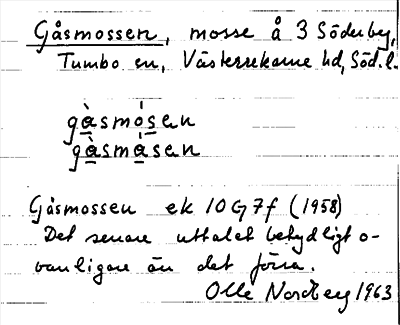 Gåsmossen, mosse å 3 Söderby,
Tumbo sn, Västerrekarne hd, Söd. l.
gàsmósen
gàsmásen
Gåsmossen ek 10G7f (1958)
Det senare uttalet betydligt o-
vanligare än det förra.
Olle Nordberg 1963